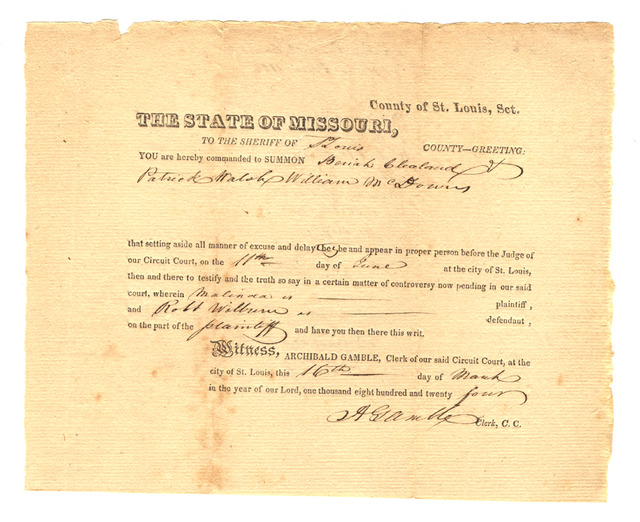 County of St. Louis, Sct.
THE STATE OF MISSOURI,
TO THE SHERIFF OF St Louis COUNTY—GREETING:
YOU are hereby commanded to SUMMON Beriah Clealand &
Patrick Walsh, William McDowns
that setting aside all manner of excuse and delay they be and appear in proper person before the Judge of
our Circuit Court, on the 11th day of June at the city of St. Louis,
then and there to testify and the truth so say in a certain matter of controversy now pending in our said
court, wherein Malinda is plaintiff,
and Robt Wilburn is defendant,
on the part of the plaintiff and have you then there this writ.
Witness, ARCHIBALD GAMBLE, Clerk of our said Circuit Court, at the
city of St. Louis, this 16th day of March
in the year of our Lord, one thousand eight hundred and twenty four
A Gamble Clerk, C. C.